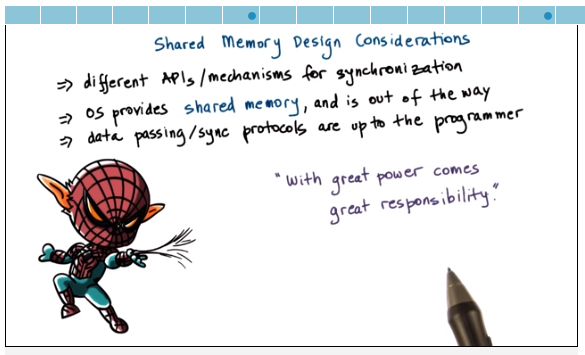 Shared Memory Design Considerations
⇒ different APIs/mechanisms for synchronization
⇒ OS provides shared memory, and is out of the way
⇒ data passing/sync protocols are up to the programmer
"with great power comes
great responsibility."